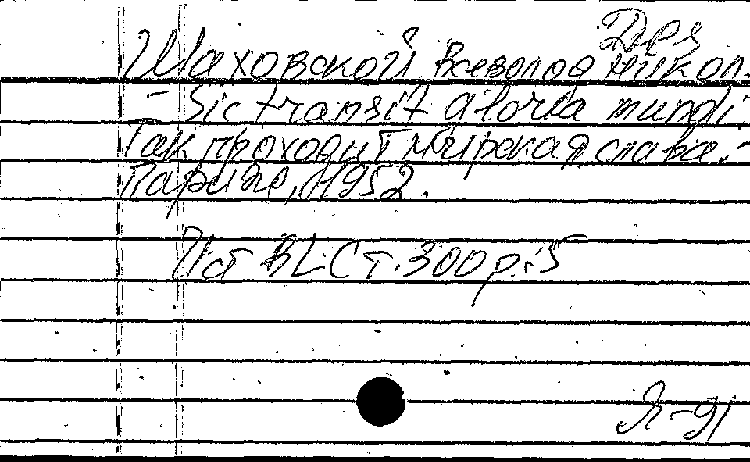 Дея
Шаховской Всеволод Никол.
- Sic transit gloria mundi.
Так проходит мирская слава. -
Париж, 1952.
BLC т. 300 р. 5
Я-91